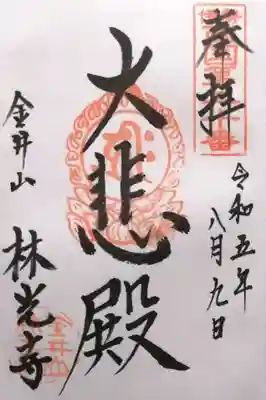 奉拝
令和五年
八月九日
大悲殿
金井山
林光寺